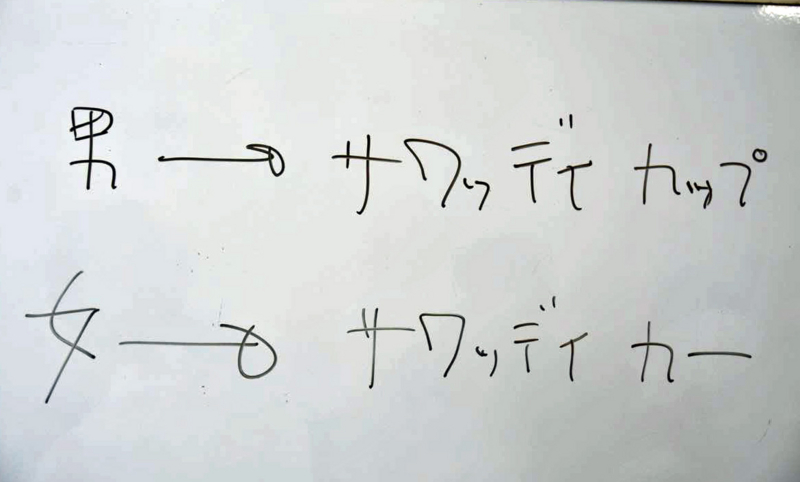 男 → サワッディ カップ
女 → サワッディ カー